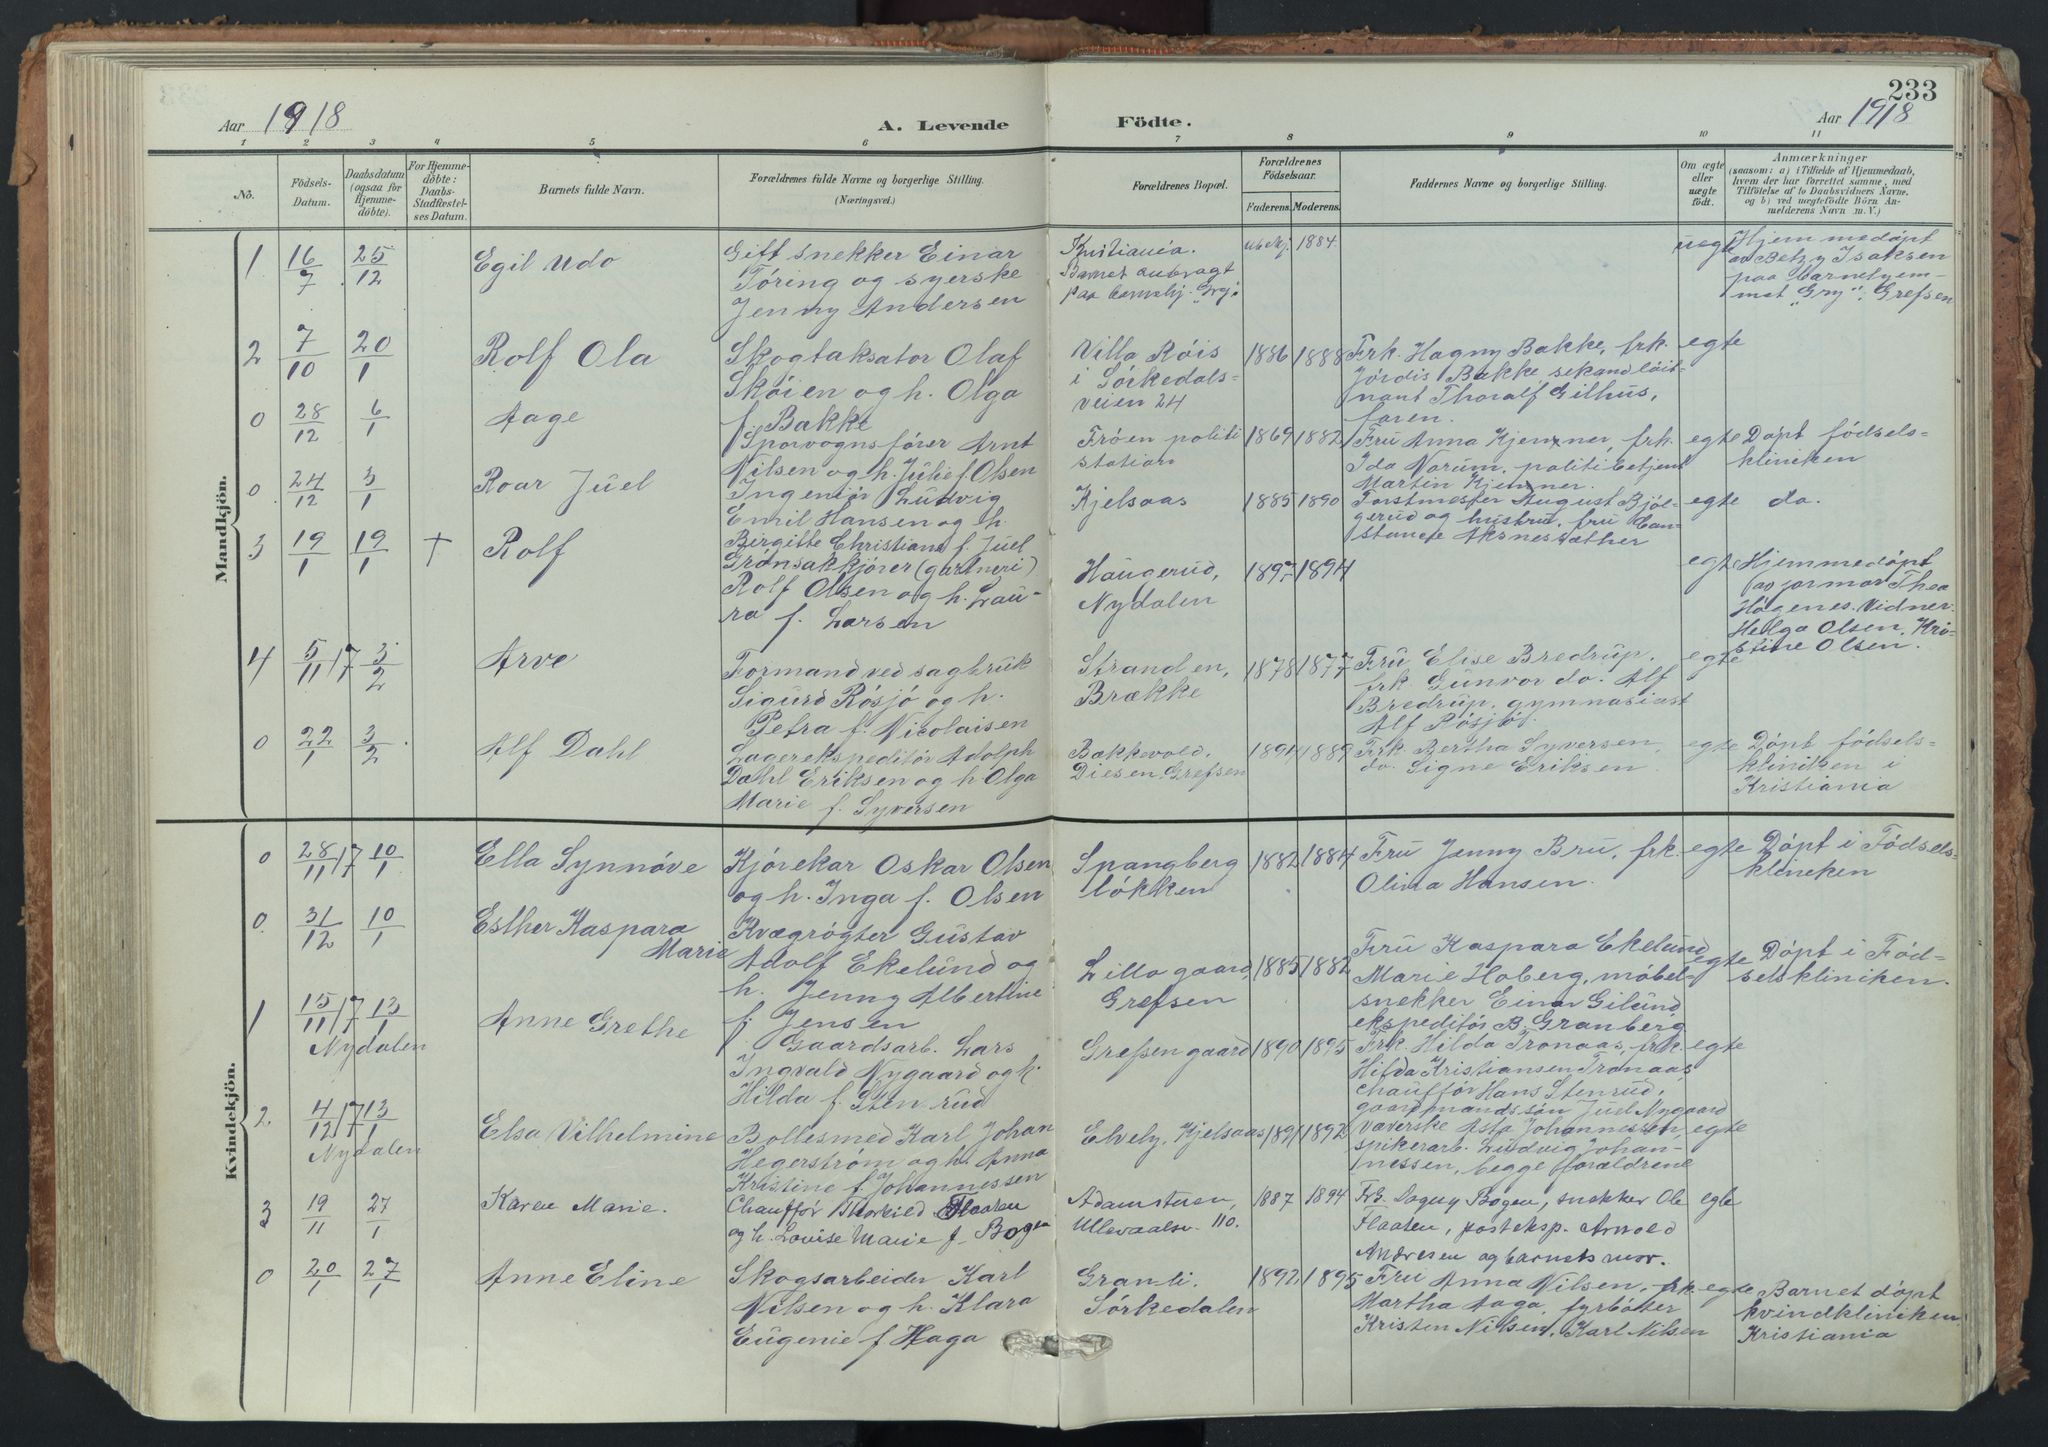 233
Aar 1918
A. Levende
Födte.
Aar 1918
1 2 3 4 5 6 7 8 9 10 11
No.
Födsels-
Datum.
Daabsdatum
(ogsaa for
Hjemme-
döbte).
For Hjemme-
döbte:
Daabs-
Stadfæstel-
ses Datum.
Barnets fulde Navn.
Forældrenes fulde Navne og borgerlige Stilling.
(Næringsvei.)
Forældrenes Bopæl.
Forældrenes
Födselsaar.
Faderens. Moderens.
Faddernes Navne og borgerlige Stilling.
Om ægte
eller
uægte
födt.
Anmærkninger
(saasom: a) i Tilfælde af Hjemmedaab,
hvem der har forrettet samme, med
Tilföielse af to Daabsvidners Navne,
og b) ved uægtefödte Börn An-
melderens Navn m. V.)
Mandkjön.
1 16/7 25/12 Egil Udo
Gift snekker Einar
Töring og syerske
Jenny Andersen
Kristiania.
Barnet anbragt
paa barnehj. "Gry".
1884
uegte
Hjemmedöpt
av Betzy Isaksen
paa barnehjem-
met "Gry", Grefsen
2 7/10 20/1 Rolf Ola
Skogtaksator Olaf
Sköien og h. Olga
f. Bakke
Villa Röis
i Sörkedals-
veien 24
1886 1888
Frk. Hagny Bakke, frk.
Jórdis Bakke sekandlöit-
nant Thoralf Gilhus,
faren.
egte
0 28/12 6/1 Aage
Sporvognsförer Arnt
Nilsen og h. Julie f. Olsen
Fröen politi
station
1869 1882
Fru Anna Kjenner, frk.
Ida Norum, politibetjent
Martin Kjenner.
egte
Döpt födsels-
kliniken
0 24/12 3/1 Roar Juel
Ingeniör Ludvig
Emil Hansen og h.
Birgitte Christiane f. Juel
Kjelsaas
1885 1890
Forstmester August Bjöl-
gerud og hustru, fru Con-
stance Aksnessæther
egte
do.
3 19/1 19/1 + Rolf
Grönsakkjörer (gartneri)
Rolf Olsen og h. Lau-
ra f. Larsen
Haugerud,
Nydalen
1897 1894
egte
Hjemmedöpt
av jormor Thea
Högenes. Vidner:
Helga Olsen, Kri-
stine Olsen.
4 5/11 17 3/2 Arve
Formand ved sagbruk
Sigurd Rösjö og h.
Petra f. Nicolaisen
Stranden,
Brække
1878 1877
Fru Elise Bredrup,
frk. Gunvor do. Alf
Bredrup, gymnasiast
Alf Rösjö.
egte
0 22/1 3/2 Alf Dahl
Lagerekspeditör Adolph
Dahl Eriksen og h. Olga
Marie f. Syversen
Bakkevold,
Diesen, Grefsen
1891 1889
Frk. Bertha Syversen,
do. Signe Eriksen.
egte
Döpt födsels-
kliniken i
Kristiania
Kvindekjön.
0 28/11 17 10/1 Ella Synnöve
Kjörekar Oskar Olsen
og h. Inga f. Olsen
Spangberg
lökken
1882 1884
Fru Jenny Bru, frk.
Olina Hansen.
egte
Döpt i Födsels-
kliniken
0 31/12 10/1 Esther Kaspara
Marie
Kvægrögter Gustav
Adolf Ekelund og
h. Jenny Albertine
f. Jensen
Lillogaard,
Grefsen
1885 1882
Fru Kaspara Ekelund,
Marie Hoberg, möbel-
snekker Einar Gilund,
ekspeditör B. Granberg
egte
Döpt i Föd-
selskliniken.
1 15/11 17 13/1 Anne Grethe
Nydalen
Gaardsarb. Lars
Ingvald Nygaard og h.
Hilda f. Stenrud
Grefsen gaard
1890 1895
Frk. Hilda Tronaas, frk.
Hilda Kristiansen Tronaas,
chaufför Hans Stenrud,
gaardmandssön Juel Nygaard
egte
2 4/12 17 13/1 Elsa Vilhelmine
Nydalen
Boltesmed Karl Johan
Hegerström og h. Anna
Kristine f. Johannessen
Elvely, Kjelsaas
1891 1892
Væverske Asta Johannessen,
spikerarb. Ludvig Johan-
nessen, begge forældrene
egte
3 19/11 27/1 Karen Marie.
Chaufför Thorleif Flaaten
og h. Lovise Marie f. Bogen
Adamstuen,
Ullevaalsv. 110.
1887 1894
Frk. Dagny Bogen, snekker Ole
Flaaten, posteksp. Arnold
Andresen og barnets mor.
egte
0 20/1 27/1 Anne Eline
Skogsarbeider Karl
Nilsen og h. Klara
Eugenie f. Haga
Granli.
Sörkedalen
1892 1895
Fru Anna Nilsen, frk.
Martha Aaga, fyrböter
Kristen Nilsen, Karl Nilsen
egte
Barnet döpt
kvindkliniken
Kristiania